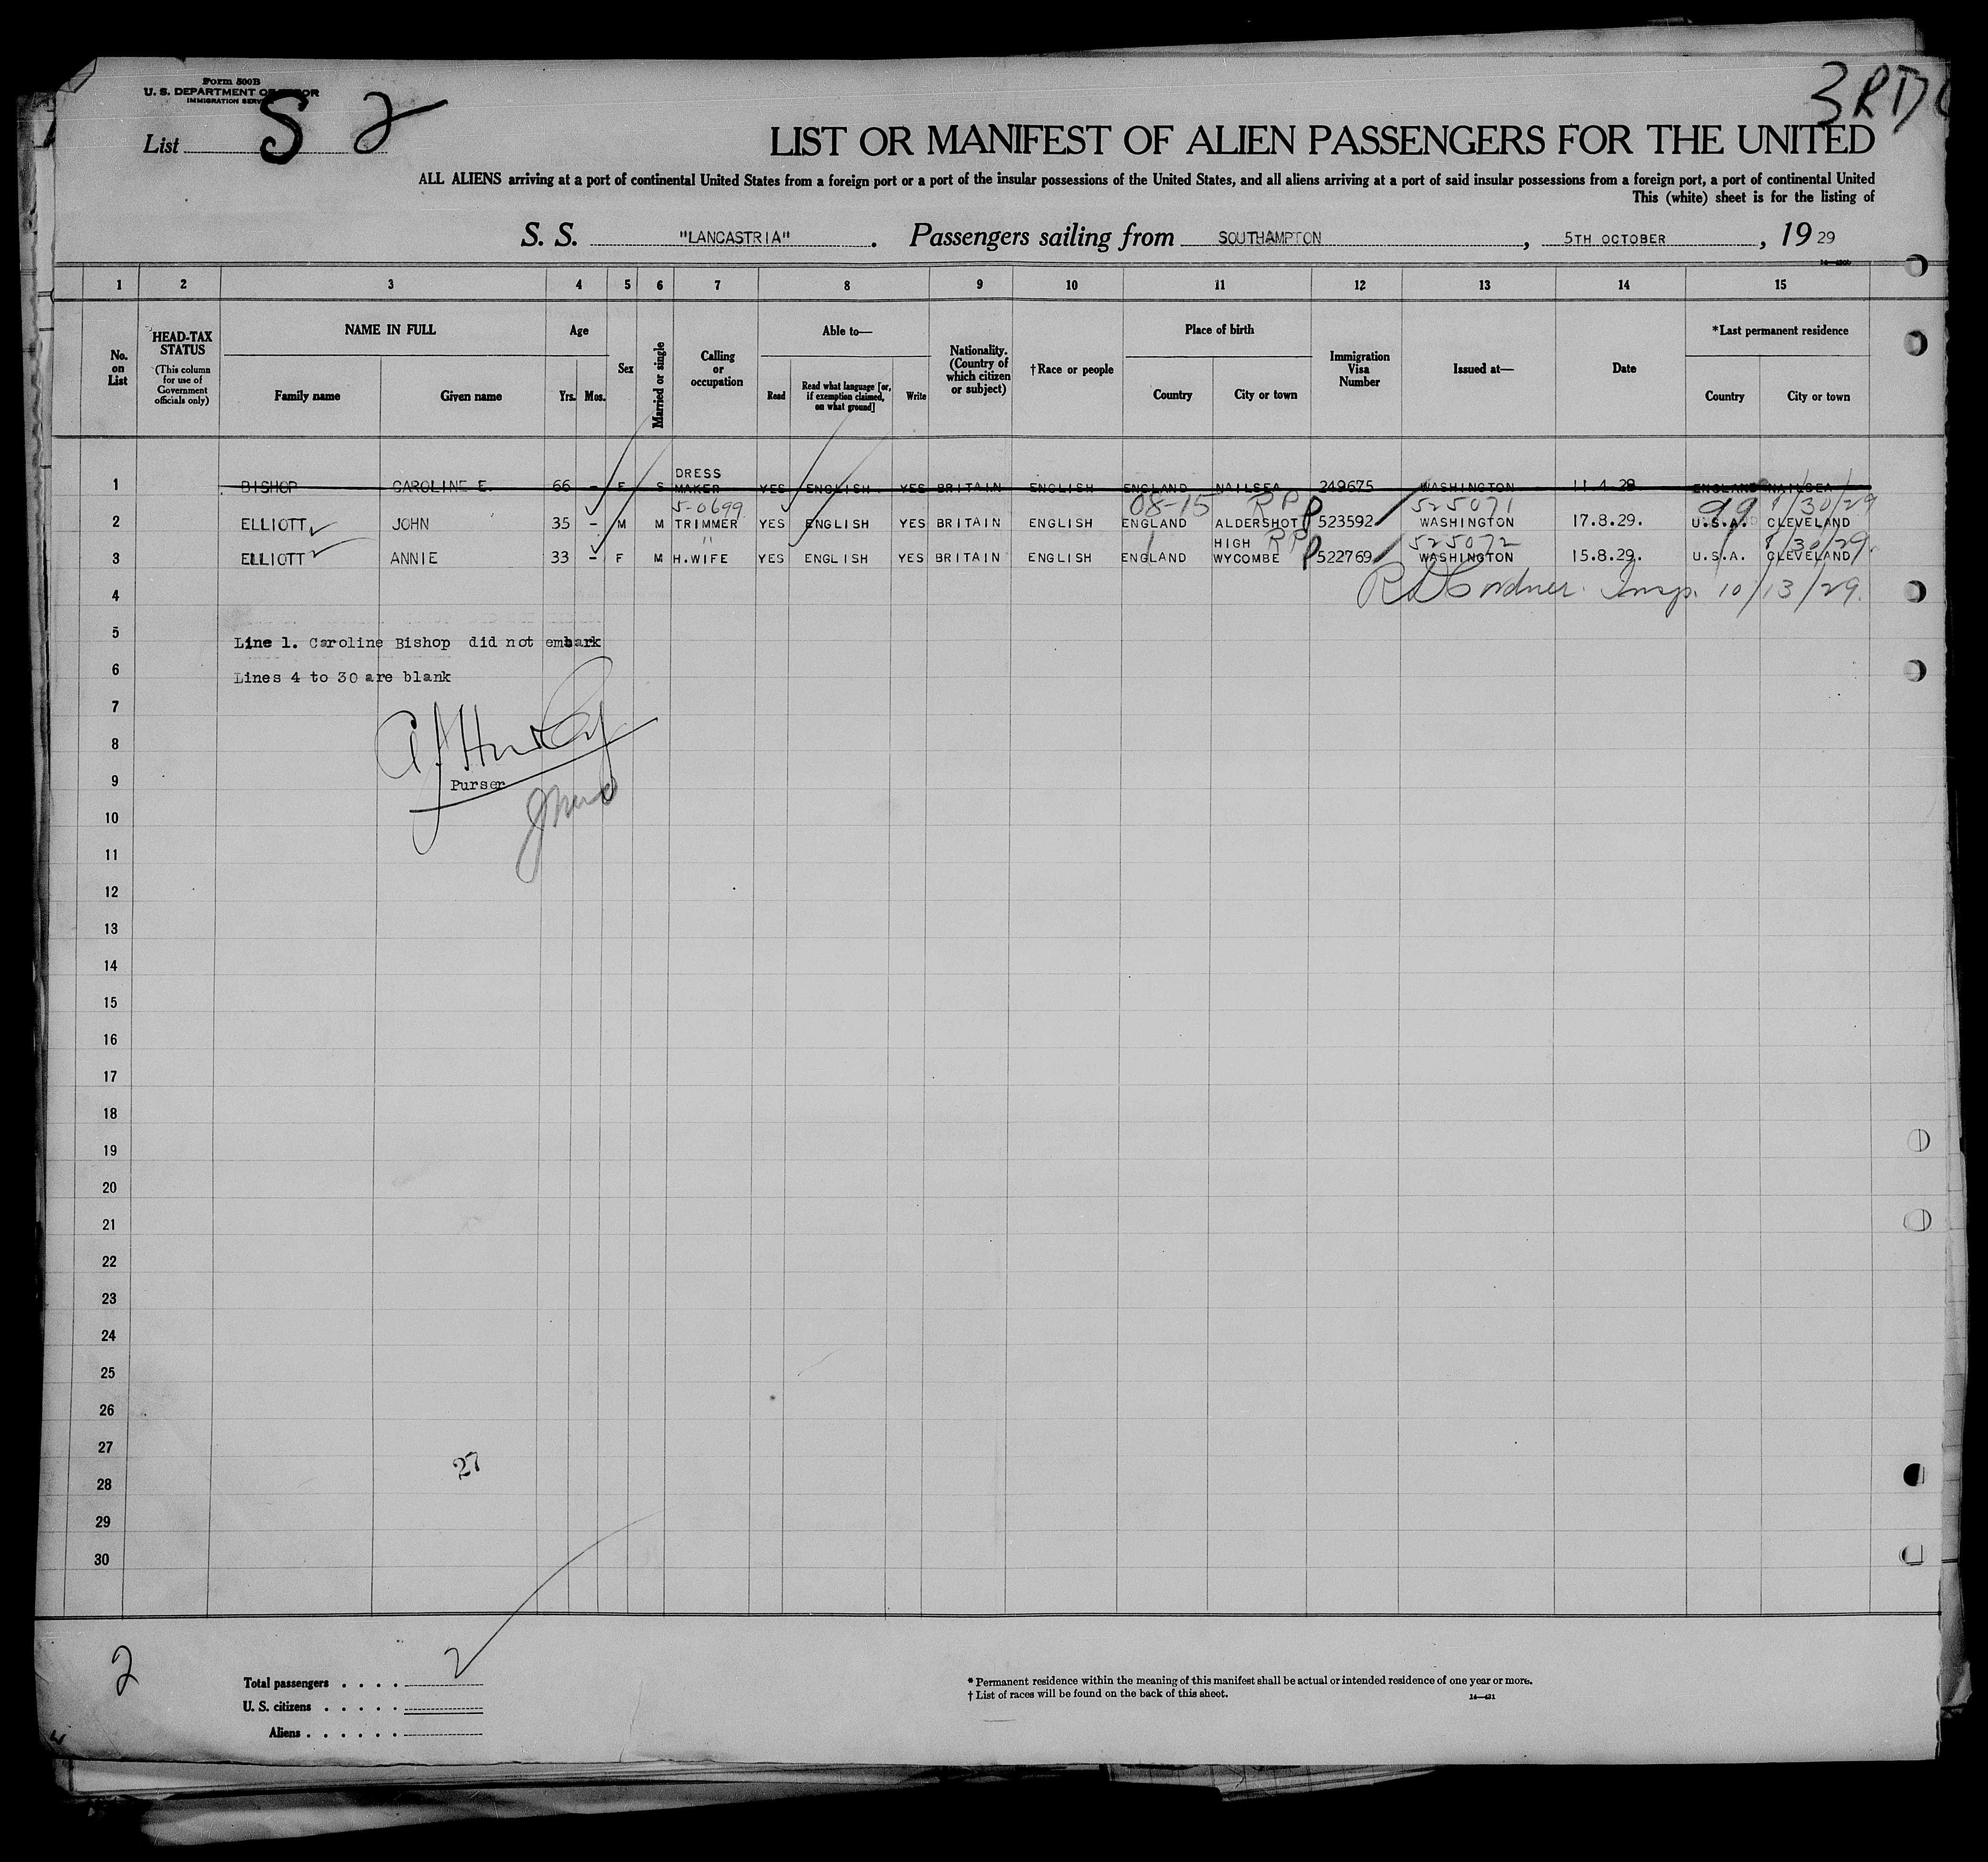 Form 500B
U. S. DEPARTMENT OF LABOR
IMMIGRATION SERVICE
List S 2
3RD C
LIST OR MANIFEST OF ALIEN PASSENGERS FOR THE UNITED
ALL ALIENS arriving at a port of continental United States from a foreign port or a port of the insular possessions of the United States, and all aliens arriving at a port of said insular possessions from a foreign port, a port of continental United
This (white) sheet is for the listing of
S. S. "LANCASTRIA". Passengers sailing from SOUTHAMPTON, 5TH OCTOBER, 1929
1 2 3 4 5 6 7 8 9 10 11 12 13 14 15
No. on List
HEAD-TAX STATUS (This column for use of Government officials only)
NAME IN FULL
Family name Given name
Age
Yrs. Mos.
Sex
Married or single
Calling or occupation
Able to—
Read Read what language [or, if exemption claimed, on what ground] Write
Nationality. (Country of which citizen or subject)
†Race or people
Place of birth
Country City or town
Immigration Visa Number
Issued at—
Date
*Last permanent residence
Country City or town
1 BISHOP CAROLINE E. 66 – F S DRESS MAKER YES ENGLISH YES BRITAIN ENGLISH ENGLAND NAILSEA 249675 WASHINGTON 11.4.29 ENGLAND NAILSEA
5-0699 08-15 RP 525071 99 9/30/29
2 ELLIOTT JOHN 35 – M M TRIMMER YES ENGLISH YES BRITAIN ENGLISH ENGLAND ALDERSHOT P 523592 WASHINGTON 17.8.29. U.S.A. CLEVELAND
" RP 525072 9/30/29.
3 ELLIOTT ANNIE 33 – F M H.WIFE YES ENGLISH YES BRITAIN ENGLISH ENGLAND HIGH WYCOMBE P 522769 WASHINGTON 15.8.29. U.S.A. CLEVELAND
4 Insp. 10/13/29.
5 Line 1. Caroline Bishop did not embark
6 Lines 4 to 30 are blank
7
8
9 Purser
10
11
12
13
14
15
16
17
18
19
20
21
22
23
24
25
26
27
27
28
29
30
2
Total passengers . . . . 2
U. S. citizens . . . . .
Aliens . . . . . .
* Permanent residence within the meaning of this manifest shall be actual or intended residence of one year or more.
† List of races will be found on the back of this sheet.